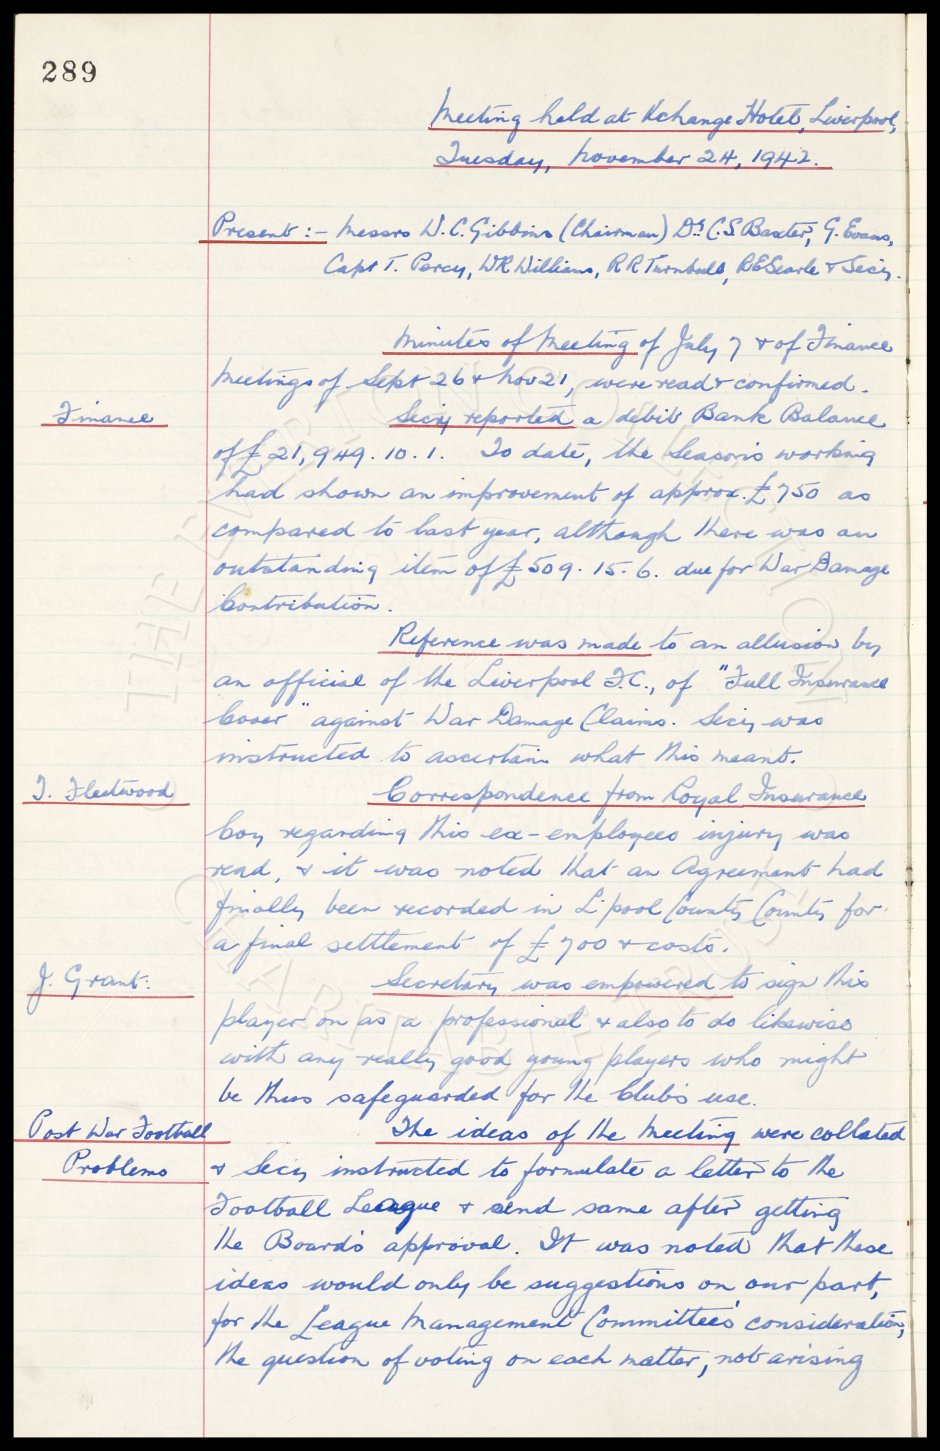 289
Meeting held at Xchange Hotel, Liverpool,
Tuesday, November 24, 1942.
Present :- Messrs W.C. Gibbins (Chairman) Dr. C.S. Baxter, G. Evans,
Capt T. Percy, W.R. Williams, R R Turnbull, R E Searle & Secy.
Minutes of Meeting of July 7 & of Finance
Meetings of Sept 26 & Nov 21, were read & confirmed.
Finance Secy reported a debit Bank Balance
of £21,949. 10. 1. To date, the Season's working
had shown an improvement of approx. £750 as
compared to last year, although there was an
outstanding item of £509. 15. 6. due for War Damage
Contribution.
Reference was made to an allusion by
an official of the Liverpool F.C., of "Full Insurance
Cover" against War Damage Claims. Secy was
instructed to ascertain what this meant.
T. Fleetwood Correspondence from Royal Insurance
Coy regarding this ex-employees injury was
read, & it was noted that an Agreement had
finally been recorded in L'pool County County for
a final settlement of £700 & costs.
J. Grant: Secretary was empowered to sign this
player on as a professional & also to do likewise
with any really good young players who might
be thus safeguarded for the Club's use.
Post War Football The ideas of the Meeting were collated
Problems & Secy instructed to formulate a letter to the
Football League & send same after getting
the Board's approval. It was noted that these
ideas would only be suggestions on our part,
for the League Management Committee's consideration,
the question of voting on each matter, not arising
THE EVERTON COLLECTION
CHARITABLE TRUST